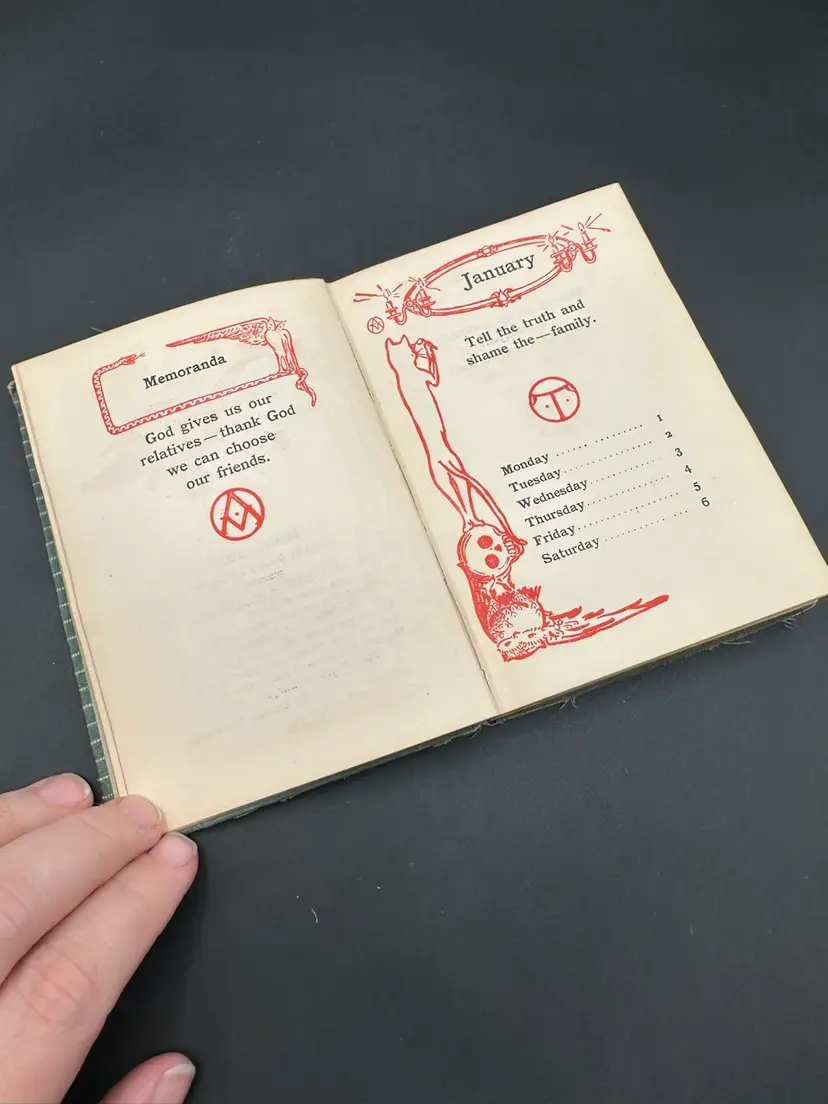 Memoranda
God gives us our
relatives—thank God
we can choose
our friends.
January
Tell the truth and
shame the—family.
Monday ...... ......... 1
Tuesday................ 2
Wednesday............. 3
Thursday............... 4
Friday.................. 5
Saturday ............... 6